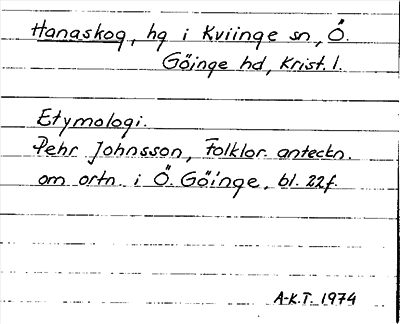 Hanaskog, hg i Kviinge sn, Ö.
Göinge hd, Krist. l.
Etymologi.
Pehr Johnsson, Folklor. anteckn.
om ortn. i Ö. Göinge, bl. 22f.
A-K.T. 1974